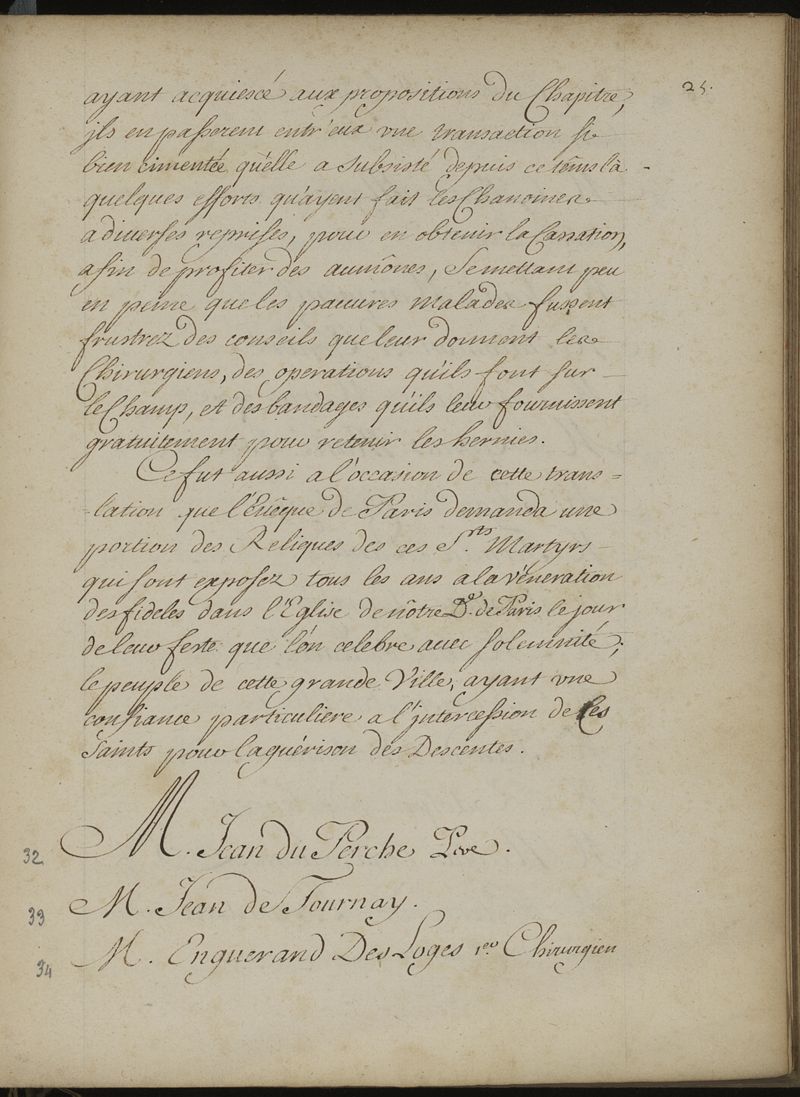 25.
ayant acquiescé aux propositions du Chapitre,
jls en passerent entr'eux vne transaction si
bien cimentée qu'elle a subsisté depuis ce têms là
quelques efforts qu'ayent fait les Chanoines
a diuerses reprises, pour en obtenir la Cassation,
afin de profiter des aumônes, se mettant peu
en peine que les pauures malades fussent
frustrez des conseils que leur donnent les
Chirurgiens, des operations qu'ils font sur
le Champ, et des bandages qu'ils leur fournissent
gratuitement pour retenir les hernies.
Ce fut aussi a l'occasion de cette trans=
-lation que l'Euêque de Paris demanda une
portion des Reliques des ces S.rts Martyrs
qui sont exposez tous les ans a la véneration
des fideles dans l'Eglise de nôtre D.e de Paris le jour
de leur feste que l'on celebre auec solemnité;
le peuple de cette grande Ville, ayant vne
confiance particuliere a l'jntercession de ces
Saints pour la guérison des Descentes.
32 M. Jean du Perche P.re.
33 M. Jean de Tournay.
34 M. Enguerand Des Loges 1.er Chirurgien